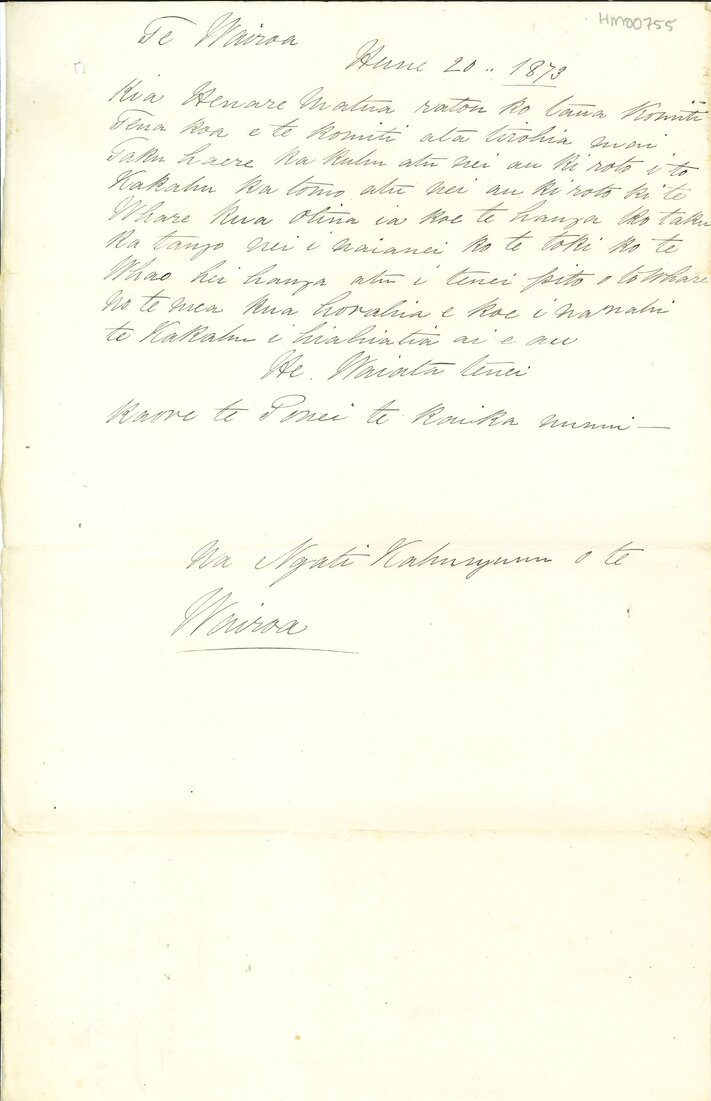 HM00755
Te Wairoa
Hune 20.. 1873
Kia Henare Matua ratou ko tana Komiti
Tena koa e te komiti ata tirohia mai
Taku haere ka kuhu atu nei au ki roto i to
Kakahu ka tomo atu nei au ki roto ki te
Whare kua otina ia koe te hanga ko taku
Ka tango nei i naianei ko te toki ko te
Whao hei hanga atu i tenei pito o to Whare
No te mea kua horahia e koe i nanahi
te Kakahu i hiahiatia ai e au
He. Waiata tenei
Kaore te Ponei te kaika numi —
Na Ngati Kahungunu o te
Wairoa